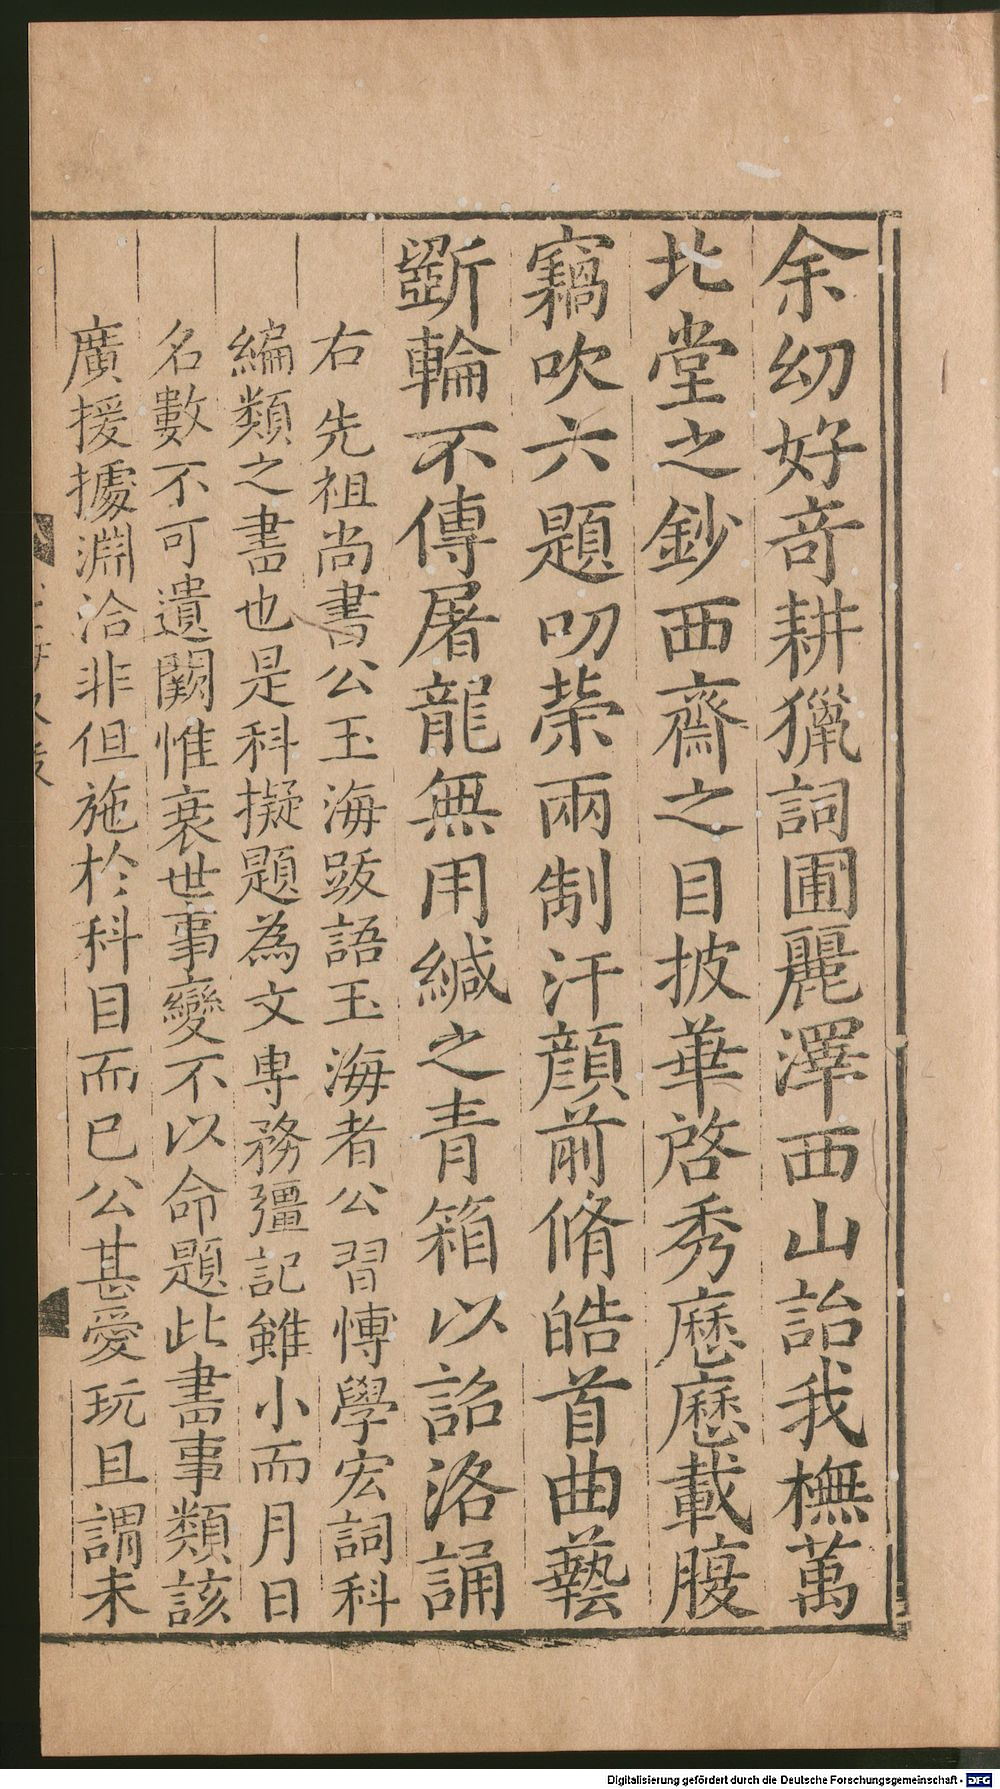 余幼好奇耕獵詞圃麗澤西山詒我橅萬
北堂之鈔西齋之目披華啓秀歷歷載腹
竊吹六題叨榮兩制汗顔前脩皓首曲藝
斵輪不傳屠龍無用緘之青箱以詔洛誦
右先祖尚書公玉海跋語玉海者公習博學宏詞科
編類之書也是科擬題為文専務彊記雖小而月日
名數不可遺闕惟衰世事變不以命題此書事類該
廣援據淵洽非但施於科目而已公甚愛玩且謂未
Digitalisierung gefördert durch die Deutsche Forschungsgemeinschaft - DFG